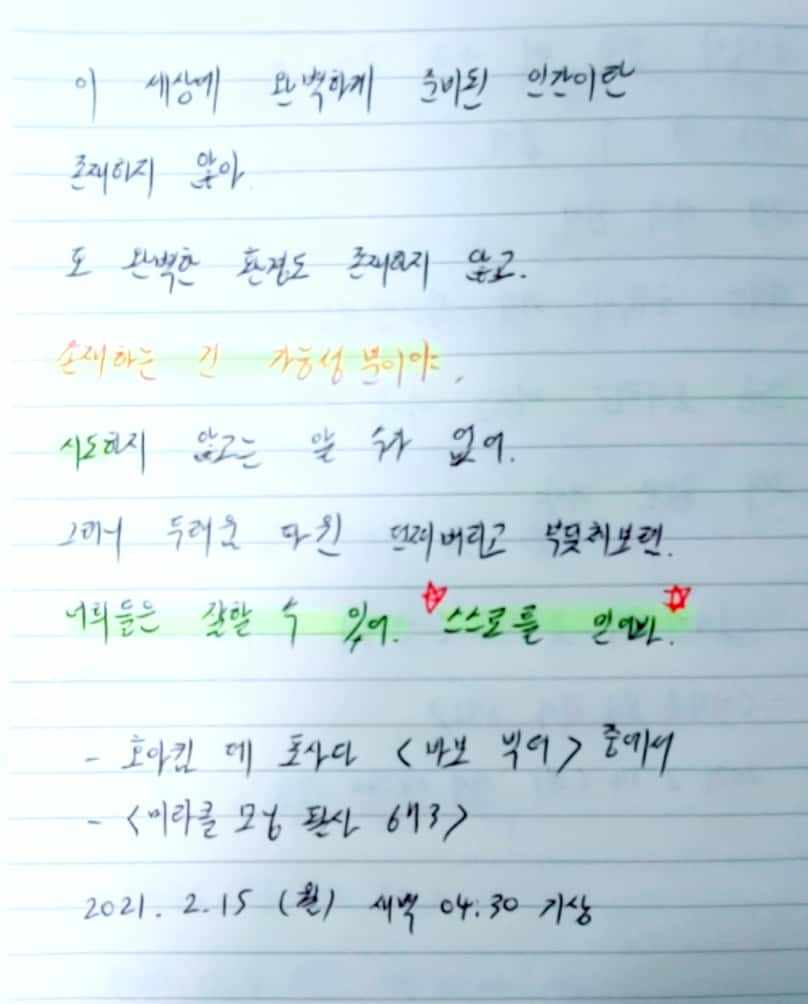 이 세상에 완벽하게 준비된 인간이란
존재하지 않아.
또 완벽한 환경도 존재하지 않고.
존재하는 건 가능성 뿐이야.
시도하지 않고는 알 수가 없어.
그러니 두려움 따윈 던져버리고 부딪쳐보렴.
너희들은 잘할 수 있어. ☆ 스스로를 믿어봐. ☆
- 호아킴 데 포사다 <바보 빅터> 중에서
- <미라클 모닝 필사 673>
2021. 2. 15 (월) 새벽 04:30 기상